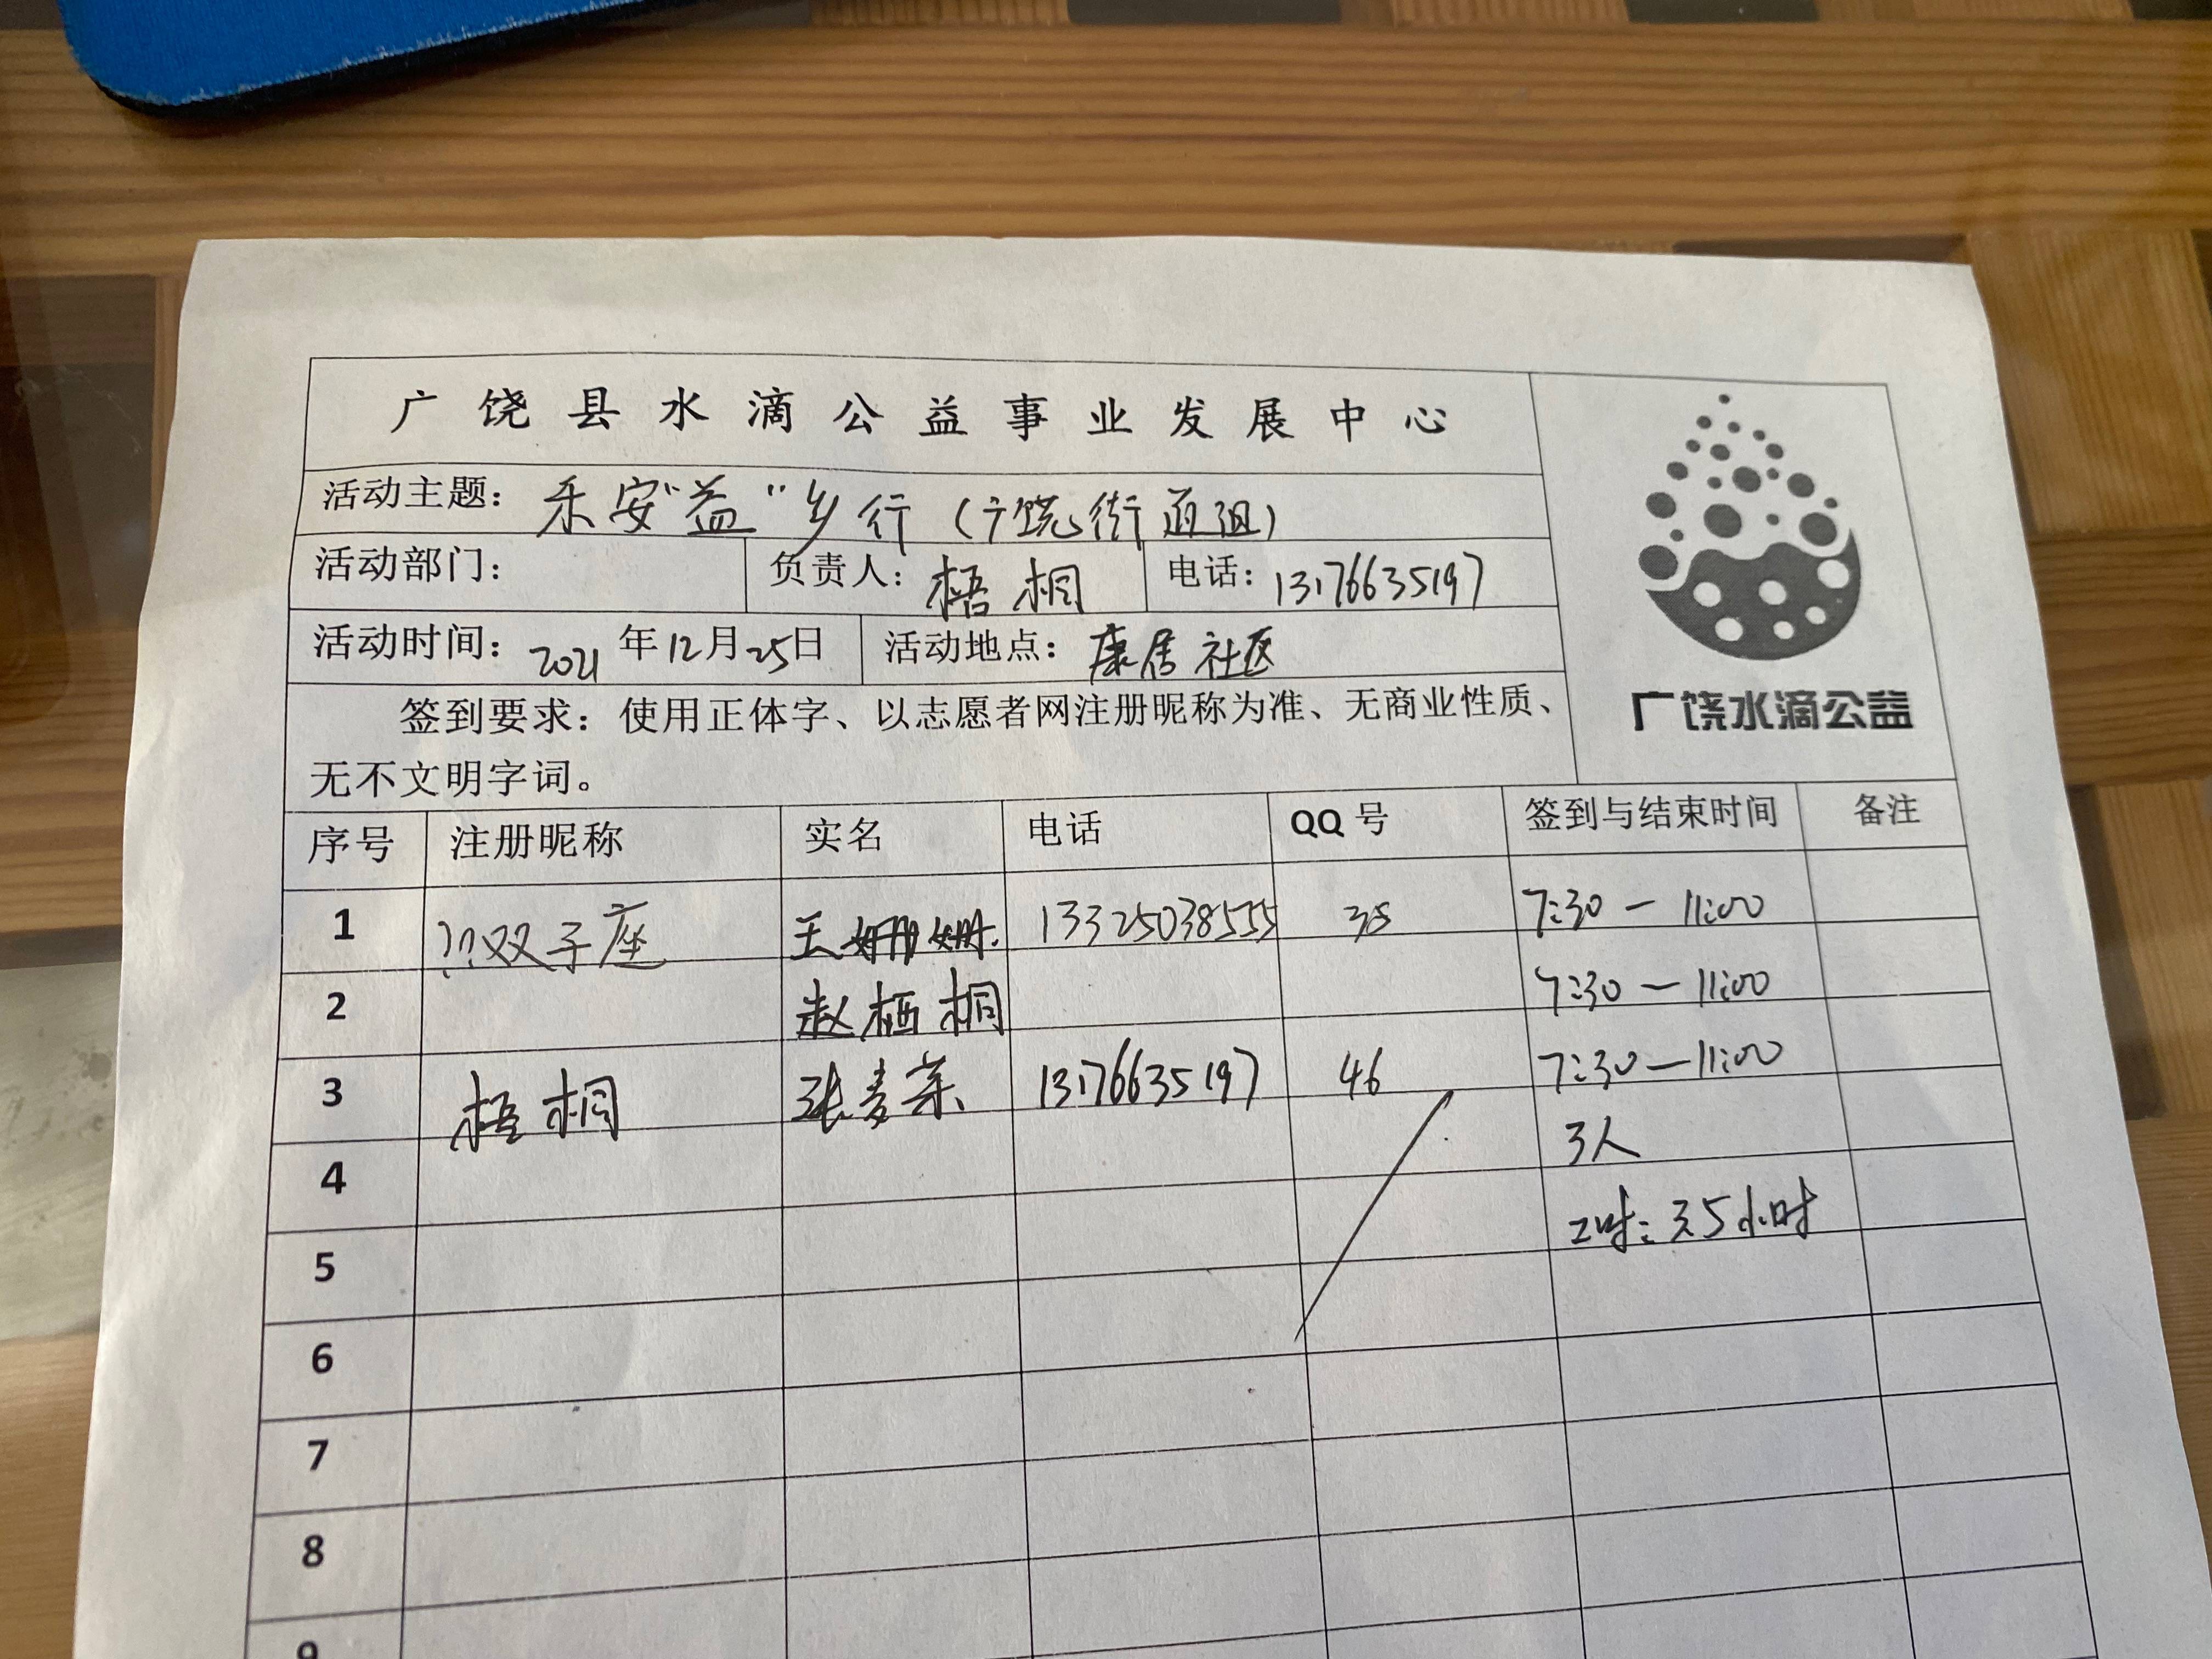 广饶县水滴公益事业发展中心
活动主题：禾安“益”乡行（广饶街道组）
活动部门： 负责人：梧桐 电话：13176635197
活动时间：2021年12月25日 活动地点：康居社区
签到要求：使用正体字、以志愿者网注册昵称为准、无商业性质、
无不文明字词。
广饶水滴公益
序号 注册昵称 实名 电话 QQ号 签到与结束时间 备注
1 ??双子座 王姗姗 13325038555 38 7:30—11:00
2 赵栖桐 7:30—11:00
3 梧桐 张麦 13176635197 46 7:30—11:00
4 3人
5 工时：3.5小时
6
7
8
9